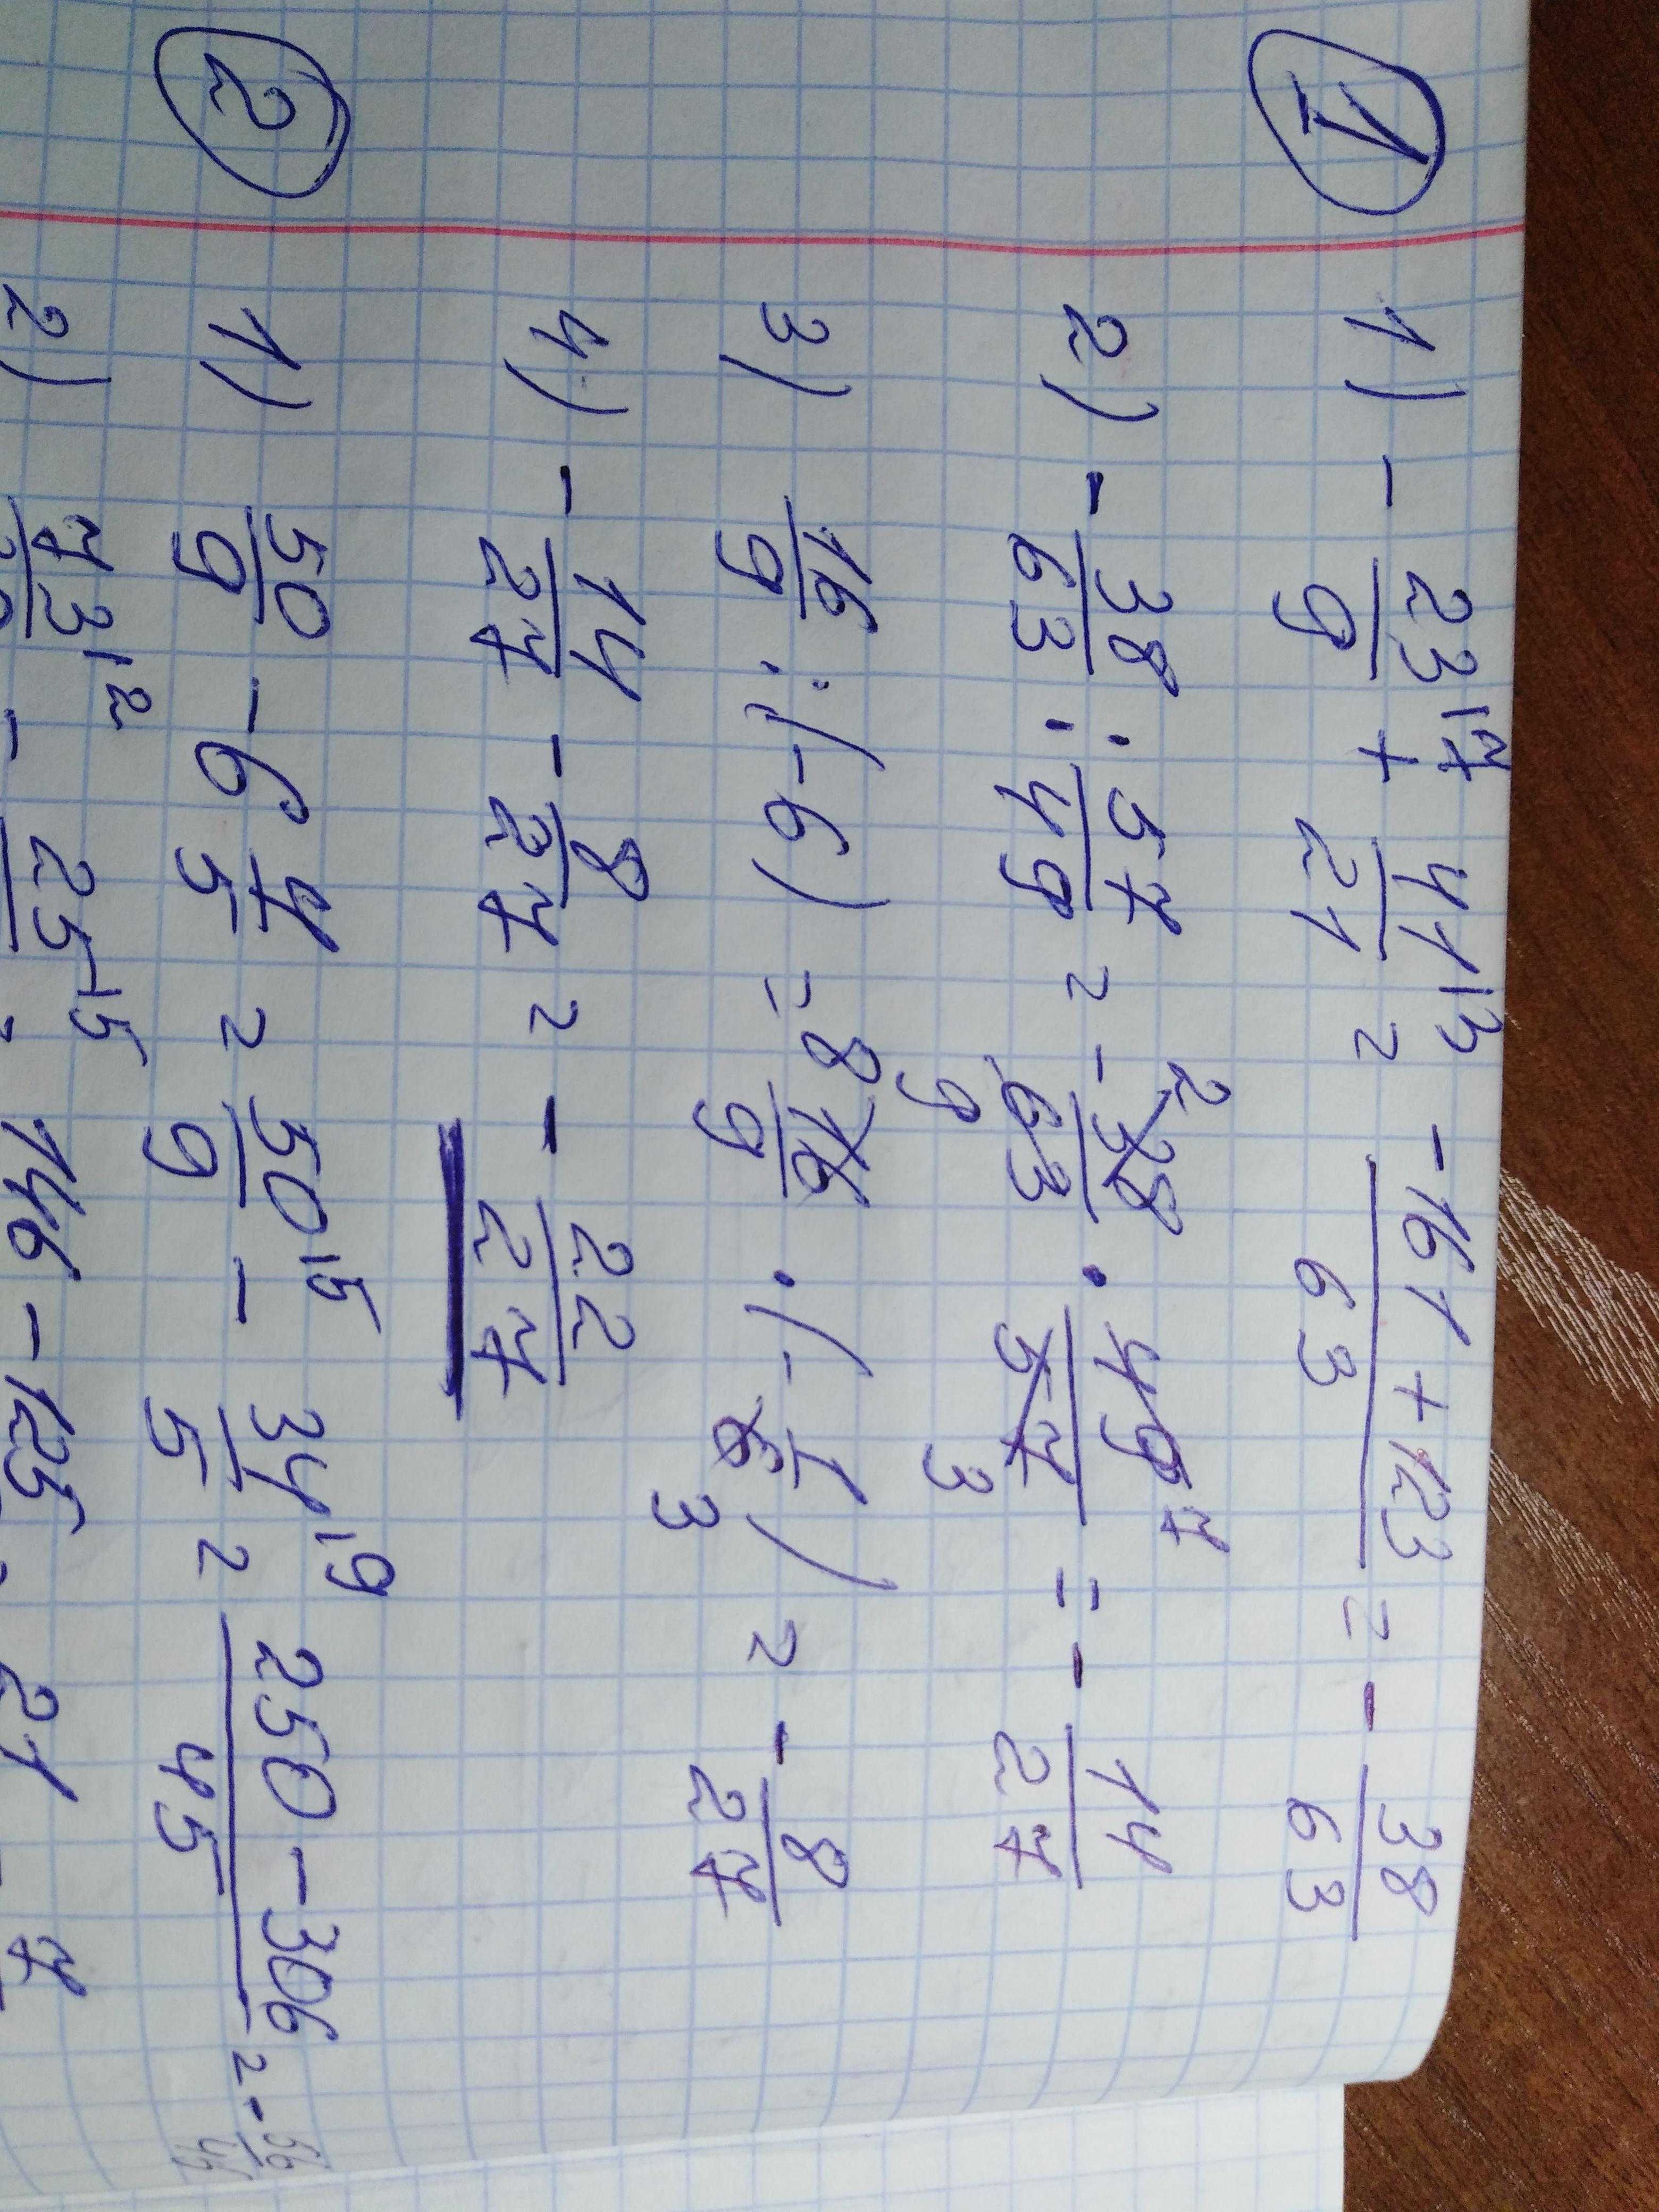 ① 1) - 23/9 |7 + 41/21 |3 = (-161 + 123)/63 = - 38/63
2) - 38/63 : 57/49 = - 38/63 · 49/57 = - 14/27
2 7
9 3
3) 16/9 : (-6) = 16/9 · (- 1/6) = - 8/27
8
3
4) - 14/27 - 8/27 = - 22/27
② 1) 50/9 - 6 4/5 = 50/9 |5 - 34/5 |9 = (250 - 306)/45 = - 56/45
2) 73 |2 - 25 |5 = 146 - 125 = 21 7